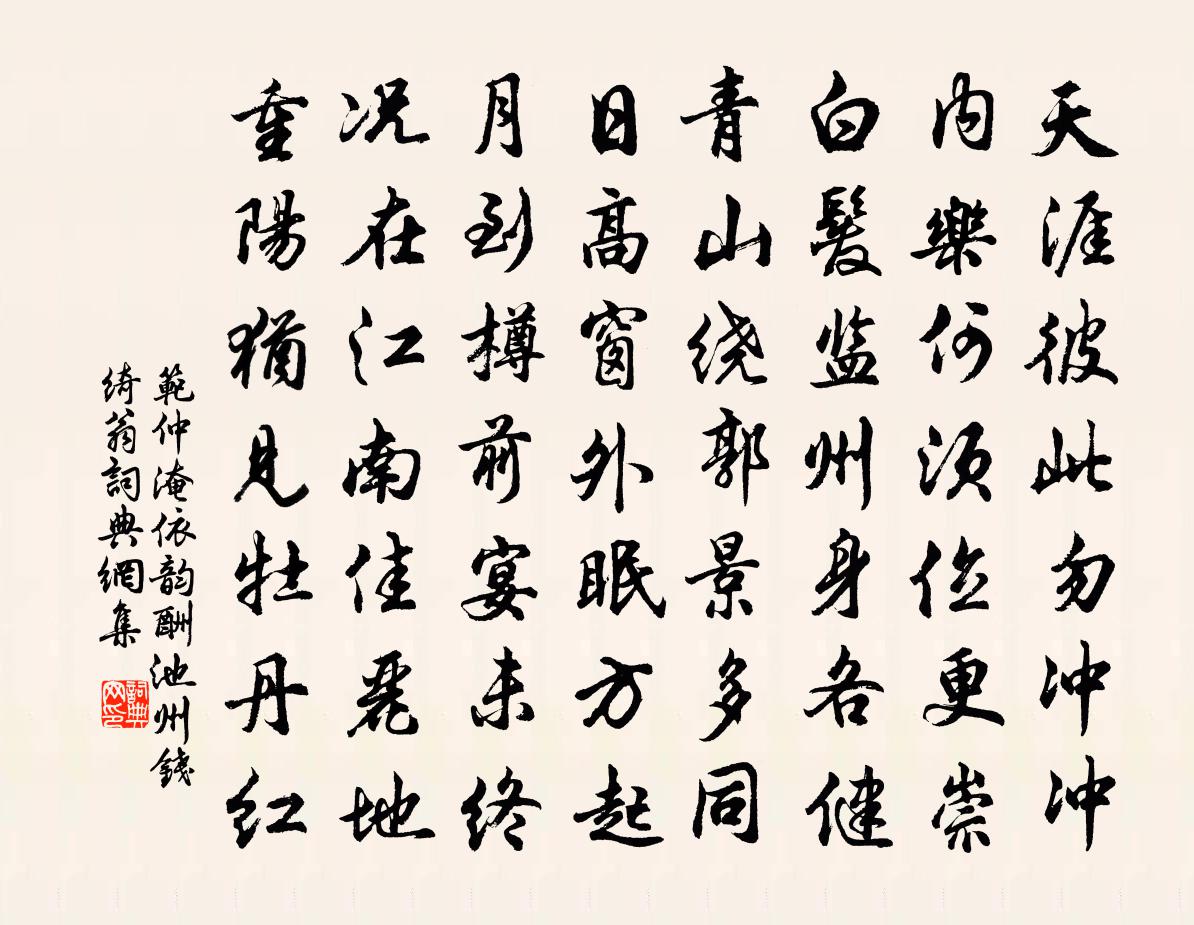 天涯彼此勿冲冲
内樂何須位更崇
白髮监州身各健
青山绕郭景多同
日高窗外眠方起
月到樽前宴未终
况在江南佳麗地
重陽猶見牡丹红
範仲淹依韵酬池州錢
綺翁詞典網集
詞典网印